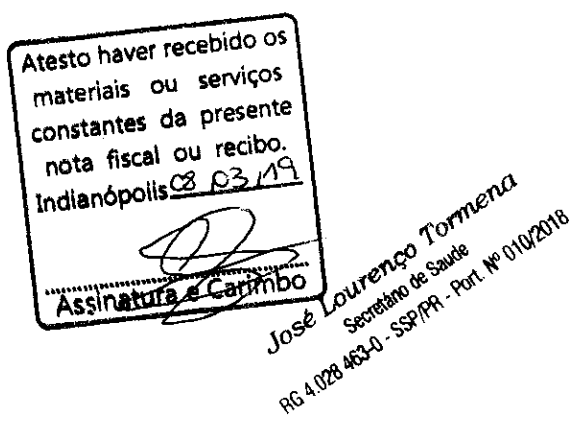 Atesto haver recebido os
materiais ou serviços
constantes da presente
nota fiscal ou recibo.
Indianópolis 08 03 / 19
Assinatura e Carimbo
José Lourenço Tormena
Secretário de Saude
RG 4.028 463-0 - SSP/PR - Port. Nº 010/2018